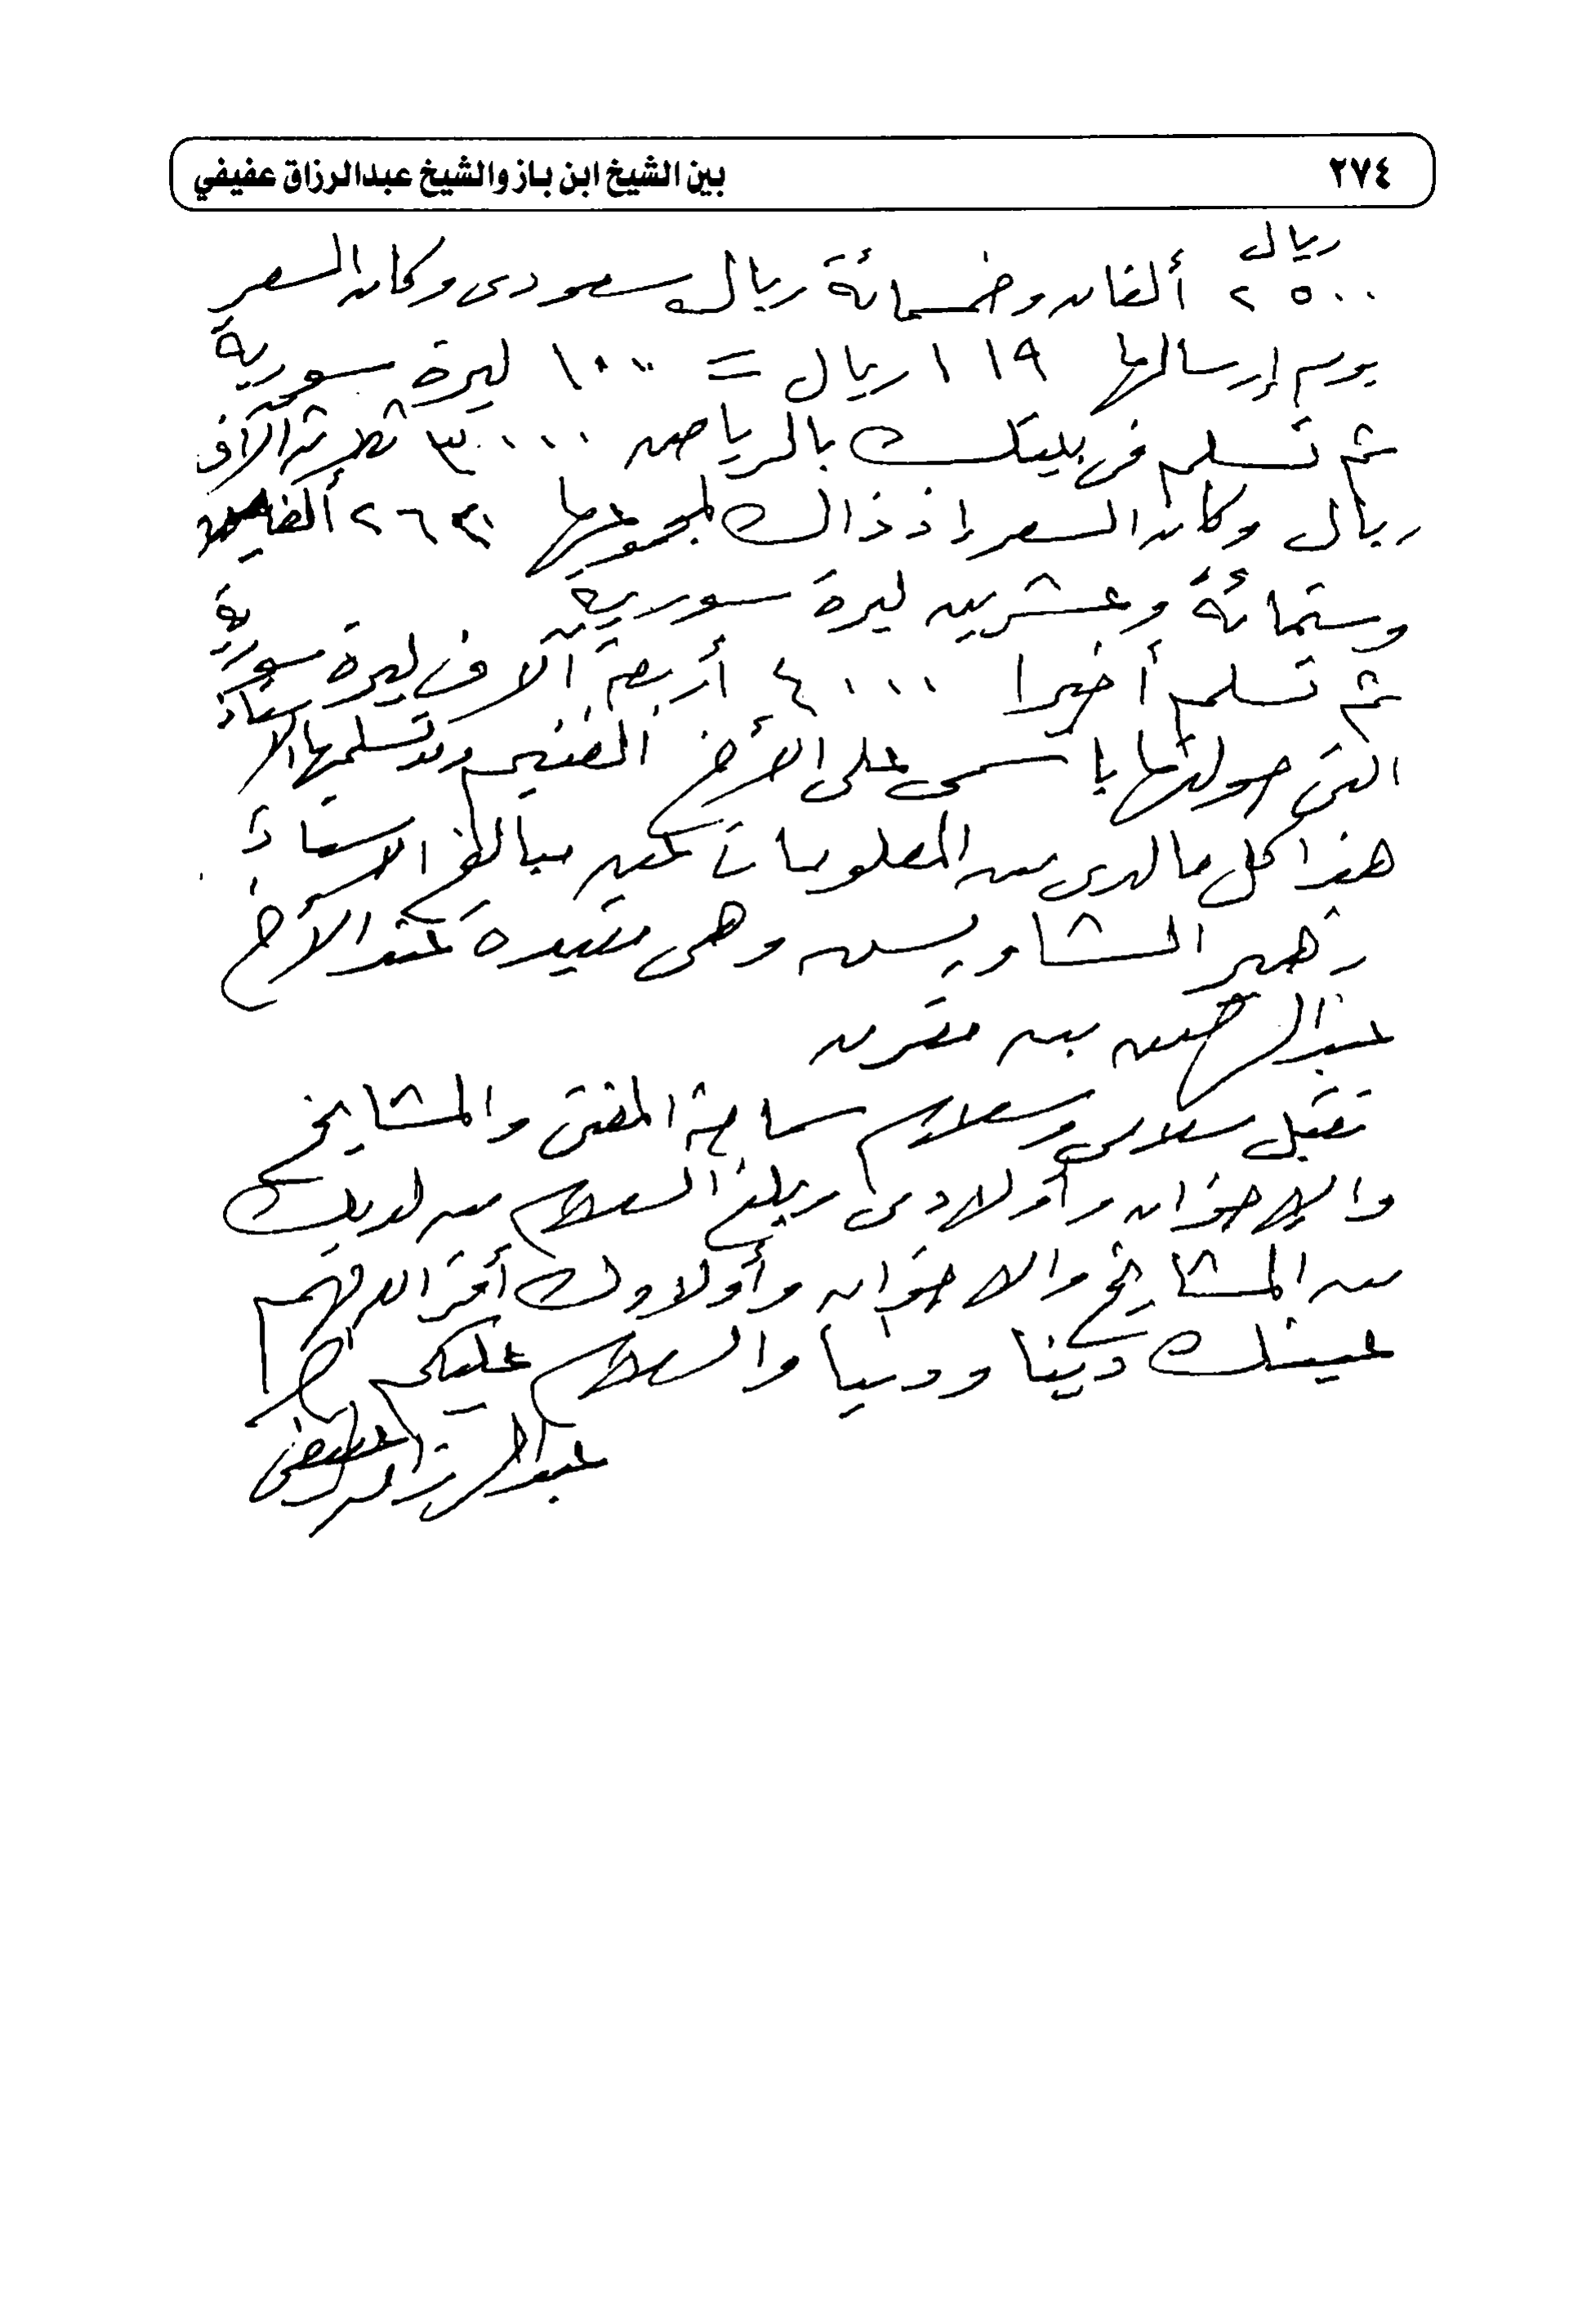 ٢٧٤
بين الشيخ ابن باز والشيخ عبدالرزاق عفيفي
ريال
٢٥٠٠ ألفان وخمسمائة ريال سعودى وكان السعر
يوم إرسالها ١١٩ ريال = ١٠٠ ليرة سورية
ثم تسلم فى بيتك بالرياض ٣٠٠٠ ثلاثة آلاف
ريال وكان السعر إذ ذاك لمجموعها ٢٦٢٠ ألفين
وستمائة وعشرين ليرة سورية
ثم تسلم أخيرا ٤٠٠٠ أربعة آلاف ليرة سورية
التى حولتها باسمى على الأخ الغنيم وقد تسلمها الاستاذ
هذا كل ما لدى من المعلومات عن مبالغ الاستاذ
زهير الشاويش وهى مقيدة عند الأخ
عبدالرحمن بن مقرن
تقبل سلامى وسلام سماحة المفتى والمشايخ
والإخوان وأولادى وبلغ السلام من لديك
من المشايخ والاخوان وأولادك أقر الله بهم
عينك دينا ودنيا والسلام عليكم
عبدالرزاق عفيفى